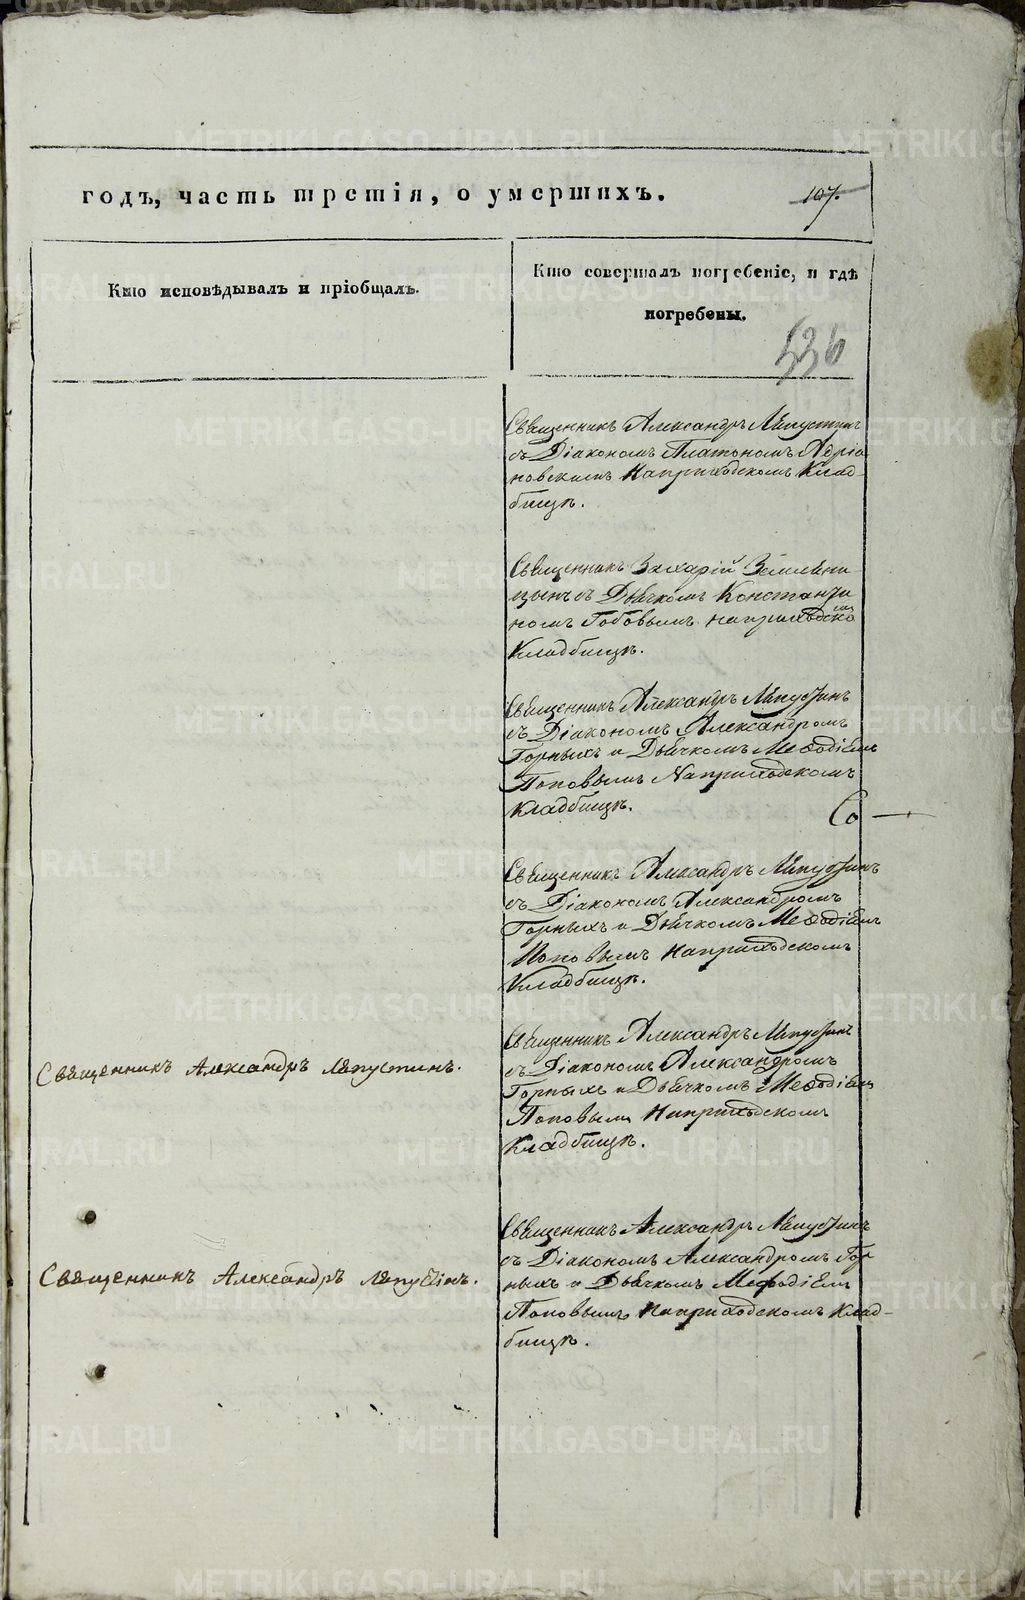 годъ, часть третія, о умершихъ.
107.
Кто исповѣдывалъ и пріобщалъ.
Кто совершалъ погребеніе, и гдѣ
погребены.
536
Священникъ Александръ Ляпустинъ
съ Діакономъ Платономъ Адріа
новскимъ На приходскомъ Клад-
бищѣ.
Священникъ Захарій Земляни
цынъ съ Дьячкомъ Константи
номъ Гобовымъ на приходско
мъ
Кладбищѣ.
Священникъ Александръ Ляпустинъ
съ Діакономъ Александромъ
Горныхъ и Дьячкомъ Меѳодіемъ
Поповымъ На приходскомъ
Кладбищѣ.
Со
Священникъ Александръ Ляпустинъ
съ Діакономъ Александромъ
Горныхъ и Дьячкомъ Меѳодіемъ
Поповымъ На приходскомъ
Кладбищѣ.
Священникъ Александръ Ляпустинъ
съ Діакономъ Александромъ
Священникъ Александръ Ляпустинъ.
Горныхъ и Дьячкомъ Меѳодіемъ
Поповымъ На приходскомъ
Кладбищѣ.
Священникъ Александръ Ляпустинъ
съ Діакономъ Александромъ Гор
Священникъ Александръ Ляпустинъ.
ныхъ и Дьячкомъ Мефодіемъ
Поповымъ На приходскомъ Клад-
бищѣ.
METRIKI.GASO-URAL.RU